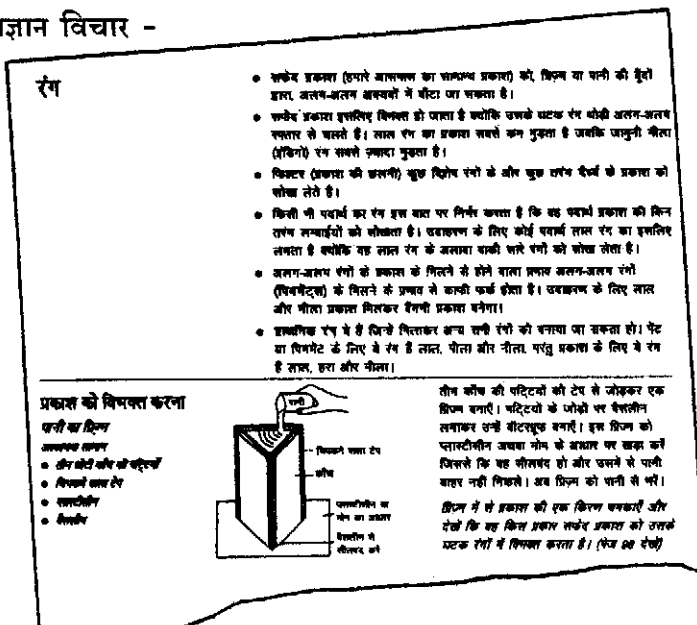 ज्ञान विचार -
रंग
• सफेद प्रकाश (हमारे आसपास का सामान्य प्रकाश) को, प्रिज़्म या पानी की बूँदों
द्वारा, अलग-अलग अवयवों में बाँटा जा सकता है।
• सफेद प्रकाश इसलिए विभक्त हो जाता है क्योंकि उसके घटक रंग थोड़ी अलग-अलग
रफ्तार से चलते हैं। लाल रंग का प्रकाश सबसे कम मुड़ता है जबकि जामुनी नीला
(इंडिगो) रंग सबसे ज़्यादा मुड़ता है।
• फिल्टर (प्रकाश की छलनी) कुछ विशेष रंगों के और कुछ तरंग दैर्ध्य के प्रकाश को
सोख लेते हैं।
• किसी भी पदार्थ का रंग इस बात पर निर्भर करता है कि वह पदार्थ प्रकाश की किन
तरंग लम्बाईयों को सोखता है। उदाहरण के लिए कोई पदार्थ लाल रंग का इसलिए
लगता है क्योंकि वह लाल रंग के अलावा बाकी सारे रंगों को सोख लेता है।
• अलग-अलग रंगों के प्रकाश के मिलने से होने वाला प्रभाव अलग-अलग रंगों
(पिगमेंट्स) के मिलने के प्रभाव से काफी फर्क होता है। उदाहरण के लिए लाल
और नीला प्रकाश मिलकर बैंगनी प्रकाश बनेगा।
• प्राथमिक रंग वे हैं जिन्हें मिलाकर अन्य सभी रंगों को बनाया जा सकता हो। पेंट
या पिगमेंट के लिए ये रंग हैं लाल, पीला और नीला, परंतु प्रकाश के लिए ये रंग
हैं लाल, हरा और नीला।
प्रकाश को विभक्त करना
पानी का प्रिज़्म
आवश्यक सामान
• तीन छोटी काँच की पट्टियाँ
• चिपकने वाला टेप
• प्लास्टीसीन
• वैसलीन
पानी
चिपकने वाला टेप
काँच
प्लास्टीसीन या
मोम का आधार
वैसलीन से
सीलबंद करें
तीन काँच की पट्टियों को टेप से जोड़कर एक
प्रिज़्म बनाएँ। पट्टियों के जोड़ों पर वैसलीन
लगाकर उन्हें वॉटरप्रूफ बनाएँ। इस प्रिज़्म को
प्लास्टीसीन अथवा मोम के आधार पर खड़ा करें
जिससे कि वह सीलबंद हो और उसमें से पानी
बाहर नहीं निकले। अब प्रिज़्म को पानी से भरें।
प्रिज़्म में से प्रकाश की एक किरण चमकाएँ और
देखें कि वह किस प्रकार सफेद प्रकाश को उसके
घटक रंगों में विभक्त करता है। (पेज 98 देखें)